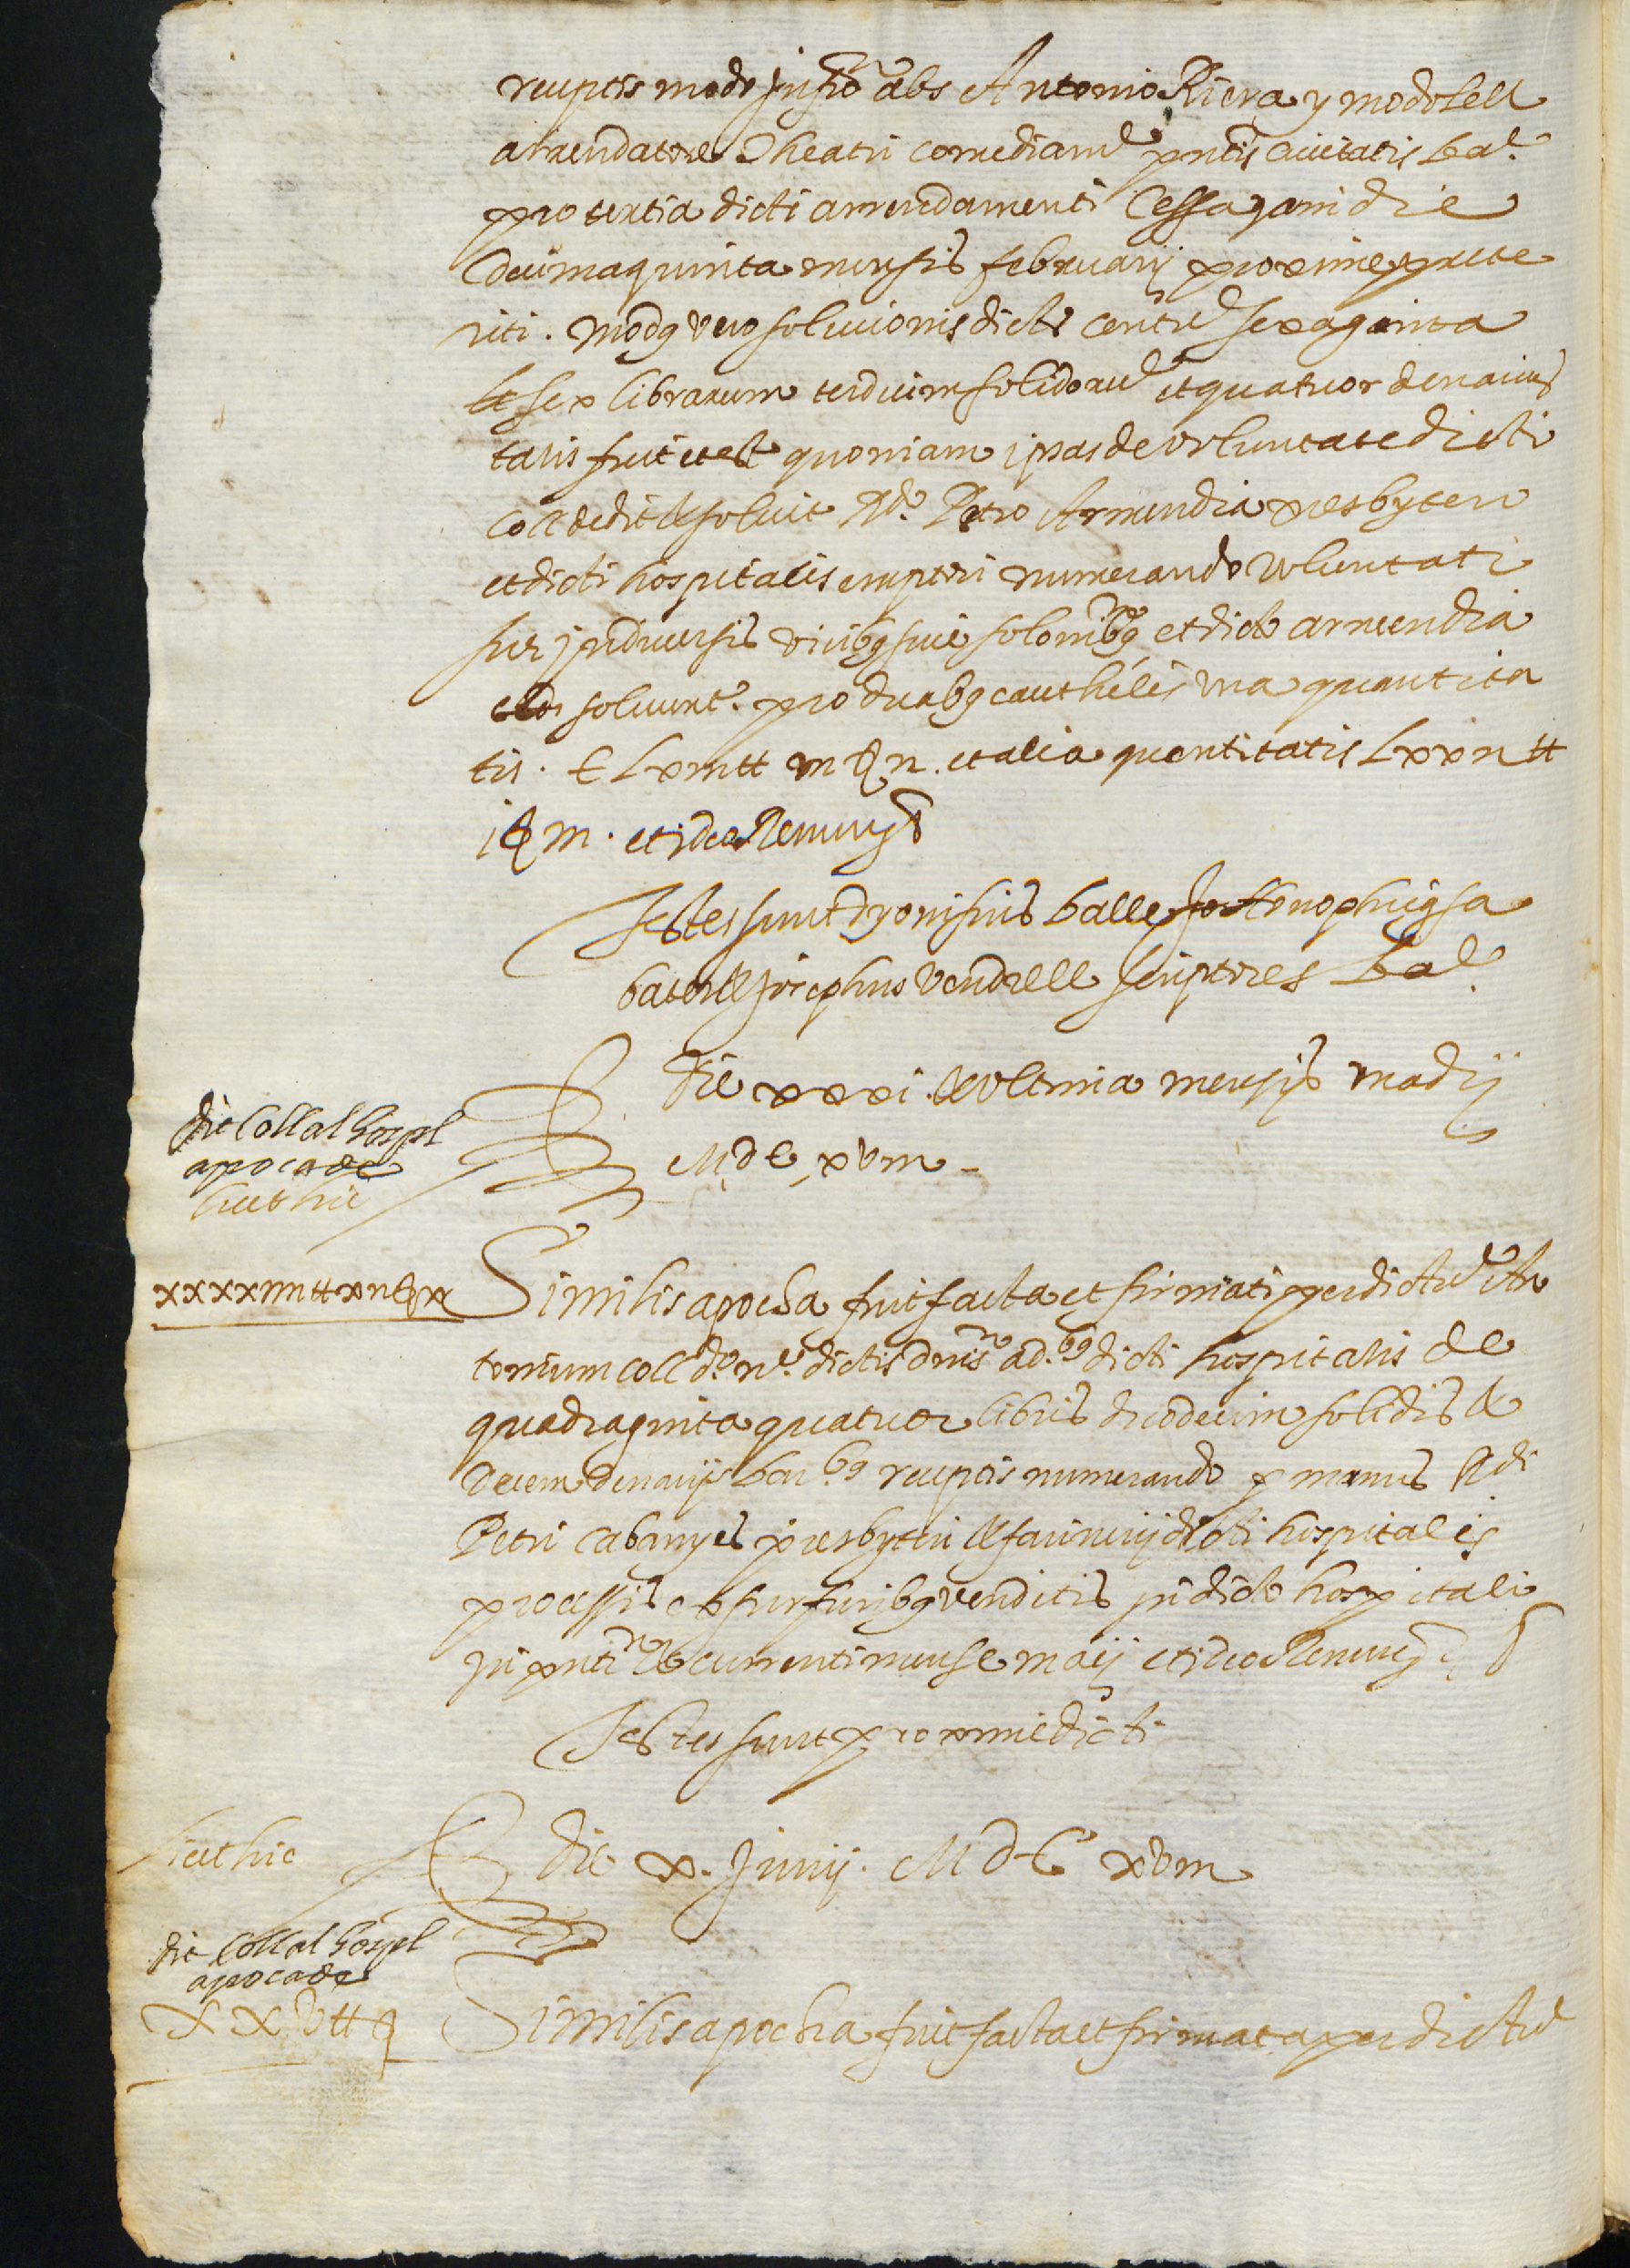 receptis modo infro abs Antonio Riera y modolell
arrendatore Theatri comediarum pntis Ciuitatis bar.
pro tertia dicti arrendamenti Cessa jam die
decimaquinta mensis februarij proxime prete
riti. modus vero solucionis dictar centu sexaginta
et sex librarum terdecim solidoru et quatuor denarior
talis fuit et est quoniam ipsas de voluntate dicti
coll dedit & soluit Rdo. Petro Armendia presbytero
et dicti hospitalis emptori numerando voluntati
sue in diuersis vicibus sive solonibus et dicto armendia
solvunt. pro duabus cauthelis una quantita
tis. C Lxiiij tt iij ẞ ij. et alia quantitatis Lxxij tt
x ẞ ij. et ideo Renung
Testes sunt dyonisius balle Onophrius sa
bater & Josephus Vendrell scriptores bar.
die xxxi. & vltima mensis madij
MdC, xviij
dit Coll al hospl
apoca de
sicut hic
xxxxiiij tt xij ẞ x
Similis apocha fuit facta et firmata per dictu An
tonium coll do. no. dictis dnis ad.bus dicti hospitalis de
quadraginta quatuor libris duodecim solidis &
decem denarijs bar.bus receptis numerando p manus Rdi
Petri Cabanyes presbyteri & farinerij dicti hospitalis
processis ex furfuribus venditis in dicto hospitali
in pnti & currenti mense maij et ideo Renung
Testes sunt proxime dicti
sicut hic
die x. Junij. MdC xviij
dit Coll al hospl
apoca de
xxv tt ẞ
Similis apocha fuit facta et firmata per dictu